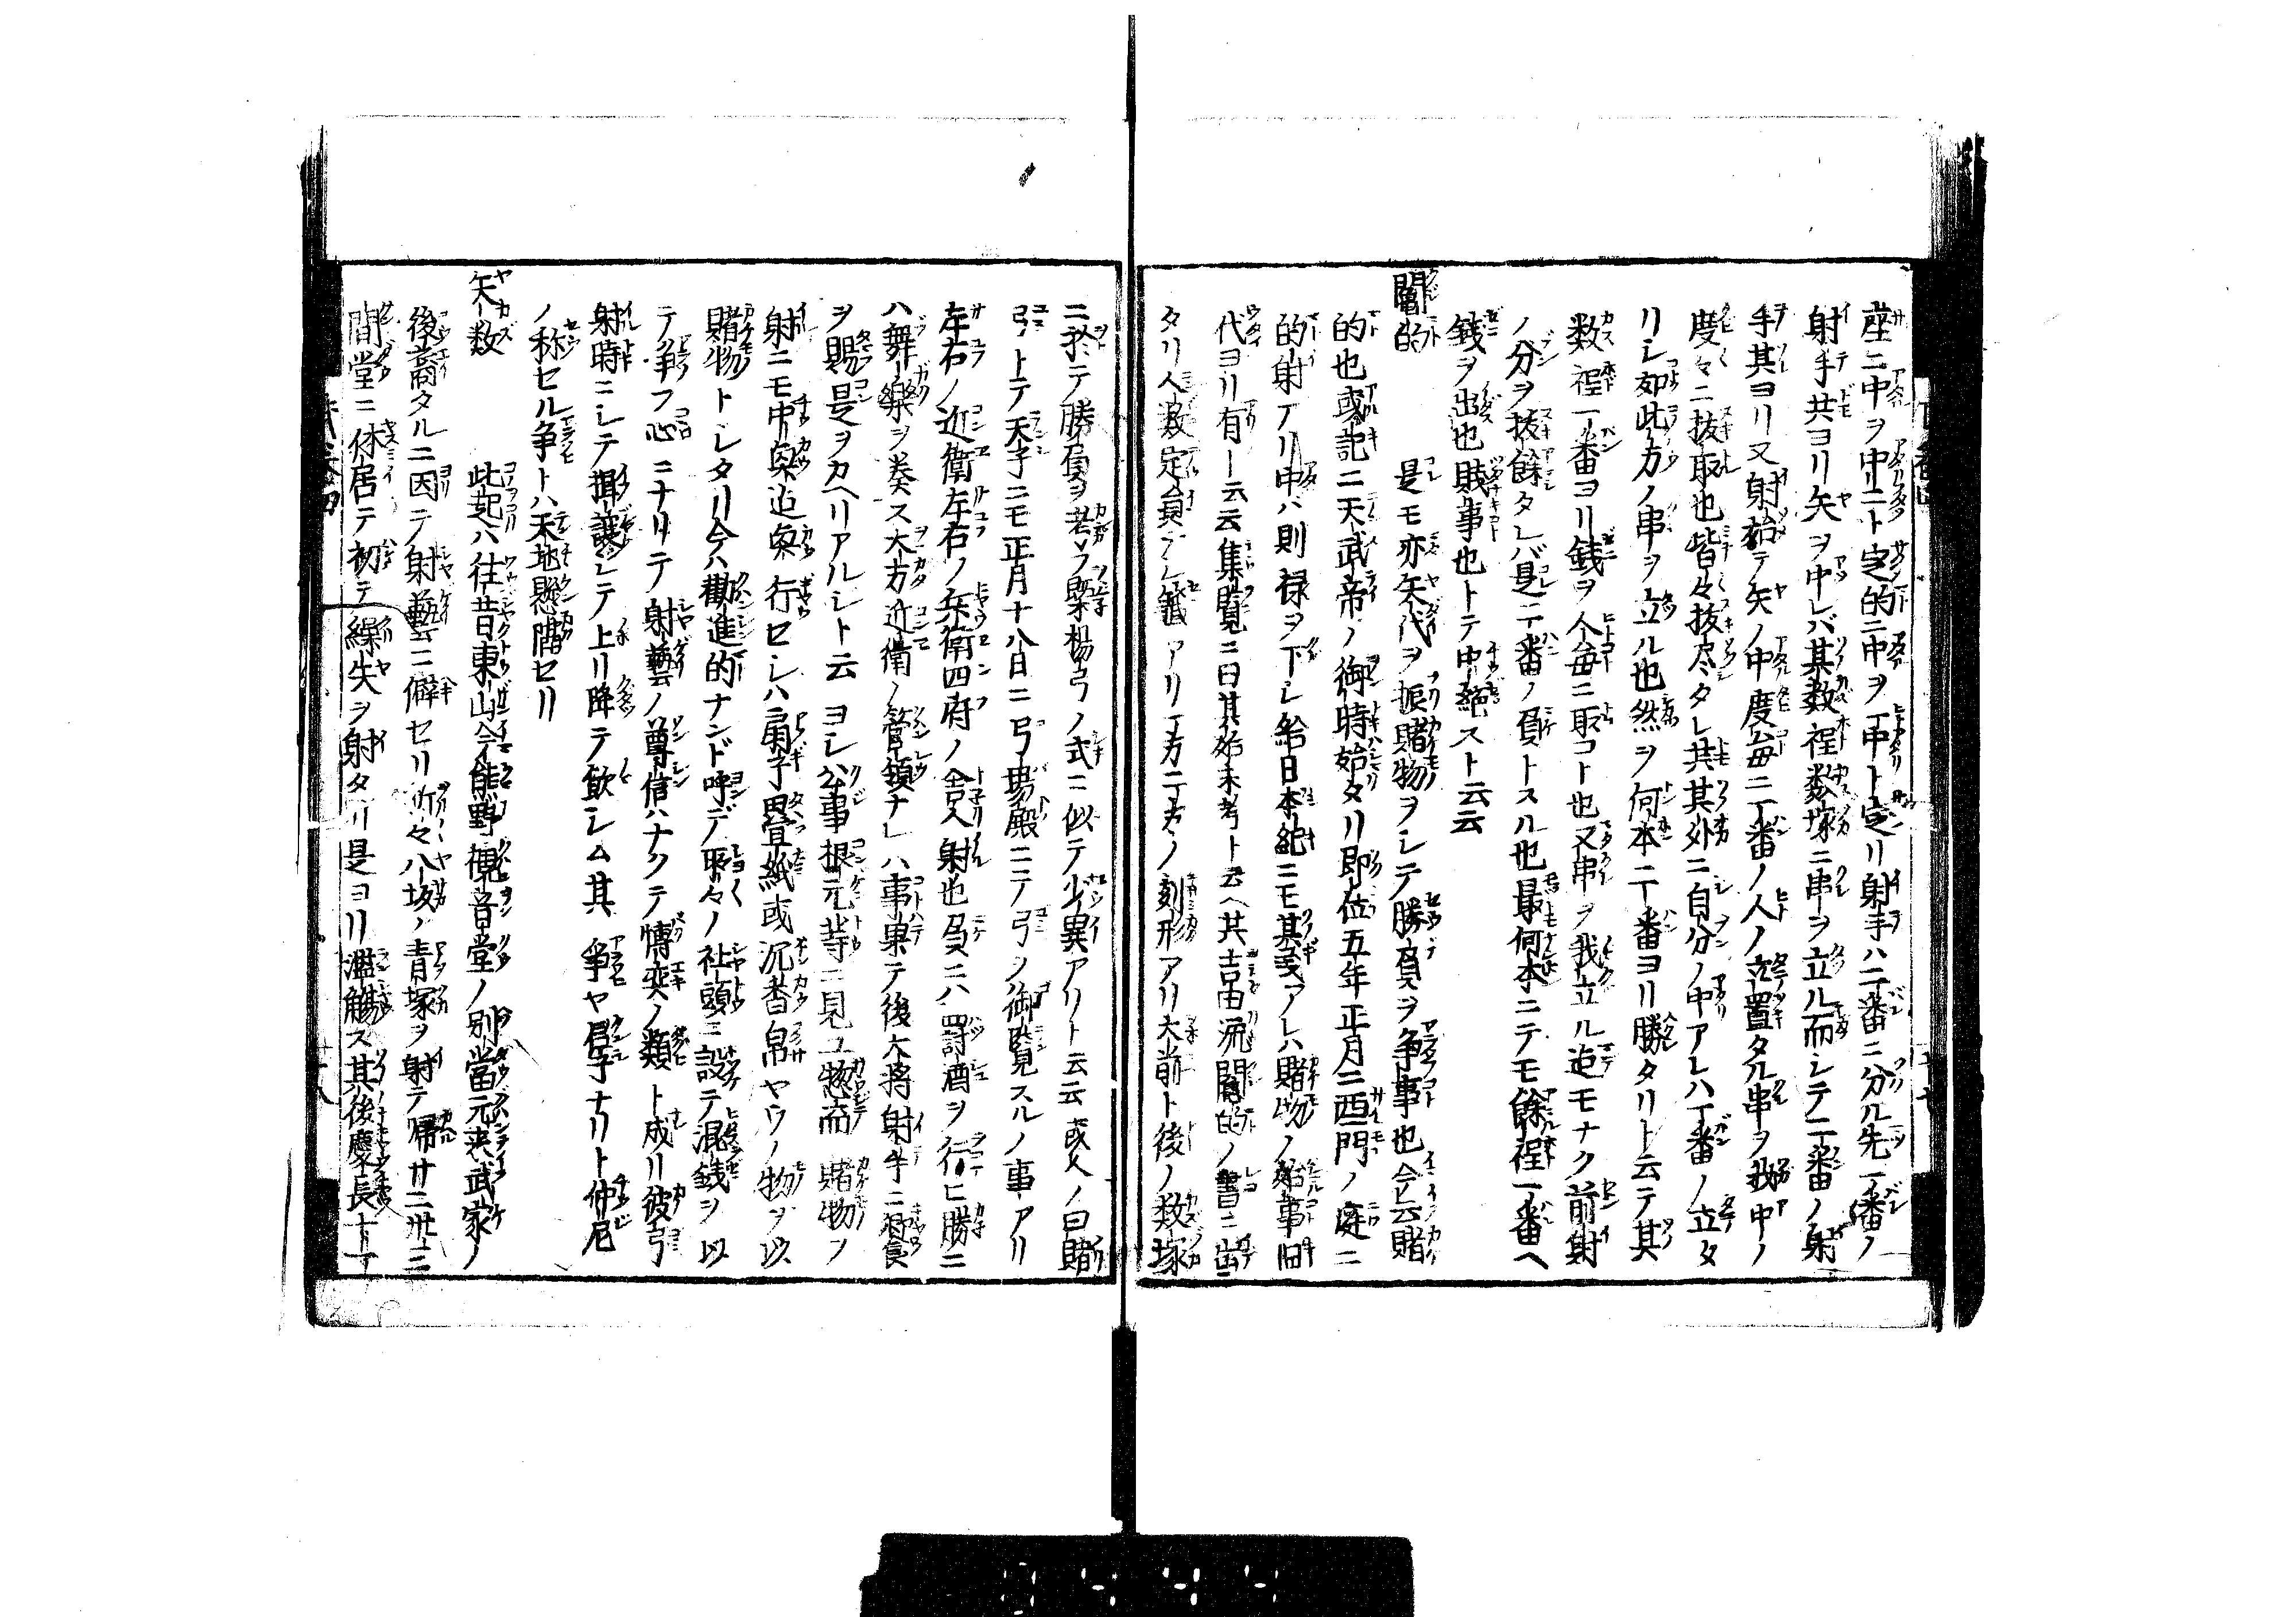 座ニ中ヲ中リニト定的ニ中ヲ一中ト定リ射手ハ二番ニ分ル先一番ノ
射手共ヨリ矢ヲ中レバ其数程数塚ニ串ヲ立ル而シテ二番ノ射
手其ヨリ又射始テ矢ノ中度毎ニ一番ノ人ノ立置タル串ヲ我中ノ
度々ニ抜取也皆々抜尽タレ共其外ニ自分ノ中アレハ一番ノ立タ
リシ如此方ノ串ヲ立ル也然ヲ何本二番ヨリ勝タリト云テ其
数程一番ヨリ銭ヲ人毎ニ取コト也又串ヲ我立ル迄モナク前射
ノ分ヲ抜餘タレバ是二番ノ負トスル也最何本ニテモ餘程一番ヘ
銭ヲ出也賤事也トテ中絶スト云云
鬮的 是モ亦矢代ヲ振賭物ヲシテ勝負ヲ争事也今云賭
的也或記ニ天武帝ノ御時始タリ即位五年正月ニ西門ノ庭ニ
的射アリ中ハ則禄ヲ下シ給日本紀ニモ其義アレハ賭物ノ始事旧
代ヨリ有ト云云集覧ニ曰其始未考ト云ヘ共吉田流鬮的ノ書ニ出
タリ人数定員ナシ鬮アリ一方二方ノ刻形アリ大前ト後ノ数塚
ニ於テ勝負ヲ考ソ楊弓ノ式ニ似テ少異アリト云云或人ノ曰賭
弓トテ天子ニモ正月十八日ニ弓場殿ニテ弓ヲ御覧スルノ事アリ
左右ノ近衛左右ノ兵衛四府ノ舎人射也負ニハ罰酒ヲ行ヒ勝ニ
ハ舞楽ヲ奏ス大方近衛ノ管領ナレハ事果テ後大将射手ニ饗
ヲ賜是ヲカヘリアルシト云ヨシ公事根元等ニ見ユ惣而賭物ノ
射ニモ中奥迄奥行セシハ扇子畳紙或沉香帛ヤウノ物ヲ以
賭物トシタリ今ハ勸進的ナンド呼デ所々ノ社頭ニ設テ混銭ヲ以
テ争フ心ニナリテ射藝ノ尊信ハナクテ博奕ノ類ト成リ彼弓
射時ニシテ揖譲シテ上リ降テ飲シム其争ヤ君子ナリト仲尼
ノ称セル争トハ天地懸隔セリ
矢数 此起ハ往昔東山今熊野観音堂ノ別當元来武家ノ
後裔タルニ因テ射藝ニ僻セリ折々八坂ノ青塚ヲ射テ帰サニ卅三
間堂ニ休居テ初テ繰矢ヲ射タリ是ヨリ濫觴ス其後慶長十一